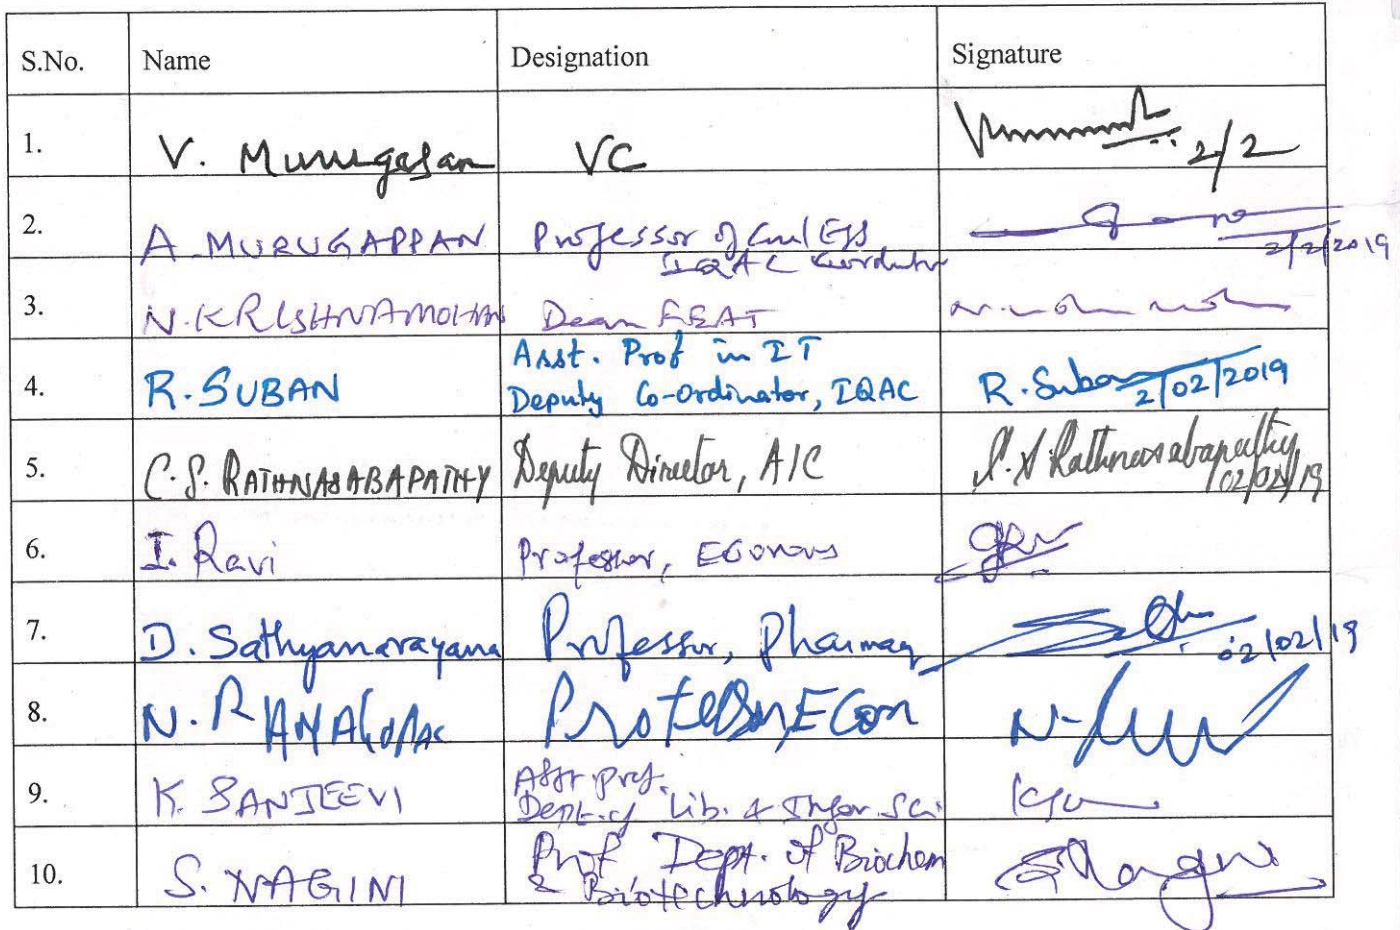 S.No. Name Designation Signature
1. V. Murugesan VC 2/2
2. A. MURUGAPPAN Professor of Civil Engg
IQAC 2/2/2019
3. N. KRISHNAMOHAN Dean FEAT
Asst. Prof in IT
4. R. SUBAN Deputy Co-Ordinator, IQAC R. Suban 2/02/2019
5. C. S. RATHNASABAPATHY Deputy Director, AIC Rathnasabapathy 02/02/19
6. I. Ravi Professor,
7. D. Sathyanarayana Professor, Pharmacy 02/02/19
8. N. RAMAGOPAL Professor, Econ
Asst prof.
9. K. SANJEEVI Dept. of Lib. & Infor. Sci
Prof, Dept. of Biochem
10. S. NAGINI & Biotechnology S Nagini